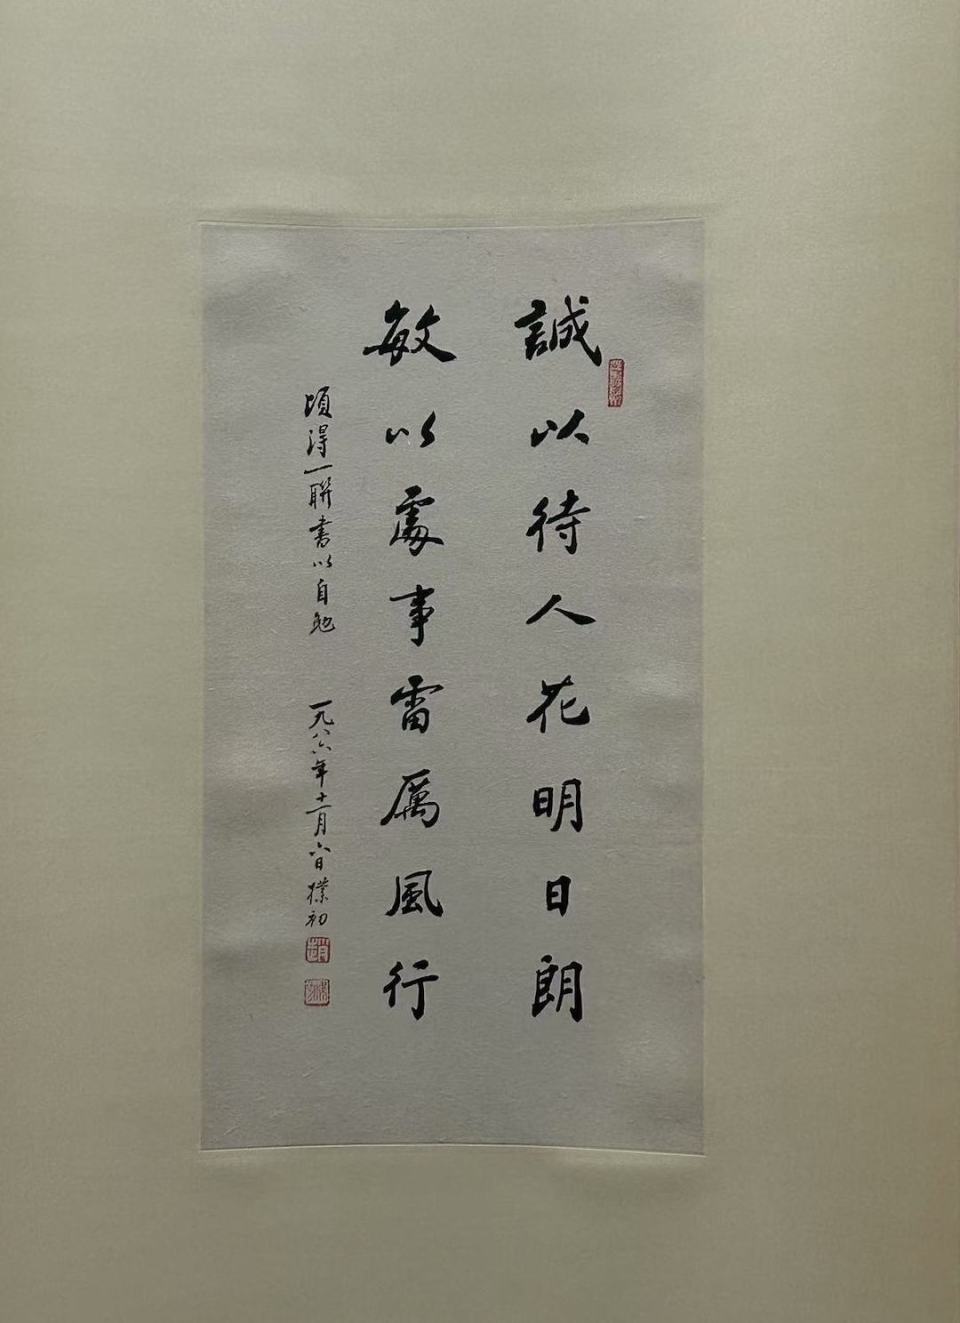 誠以待人花明日朗
敏以處事雷厲風行
頃得一聯書以自勉
一九八六年十一月六日樸初